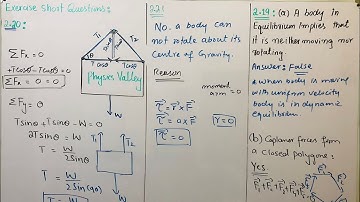 Exercise Short Questions:
2.20:
T1
T2
θ
θ
Tcosθ
Tcosθ
Physics Valley
W
ΣFx = 0
+Tcosθ - Tcosθ = 0
ΣFx = 0 = 0
ΣFy = 0
Tsinθ + Tsinθ - W = 0
2Tsinθ = W
T = W
2Sinθ
T = W
2Sin(90)
T1
T2
W
2.21
No. a body can
not rotate about its
Centre of Gravity.
Reason
moment
arm = 0
τ = r × F
τ = 0 × F
r = 0
τ = 0
2.19: (a) A body in
Equilibrium Implies that
it is neither moving nor
rotating
Answer: False
when body is moving
with uniform velocity
body is in dynamic
equilibrium.
(b) Coplanar forces form
a closed polygone:
Yes.